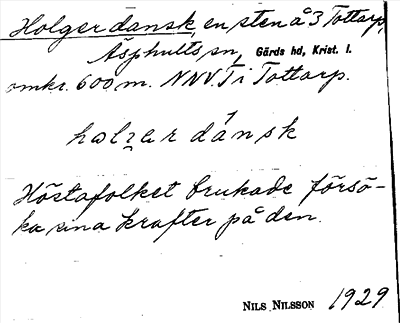 Holger dansk, en sten å 3 Tottarp,
Äsphults sn, Gärds hd, Krist. l.
omkr. 600 m. NNV. T i Tottarp.
hɑlɀɑr dánsk
Höstafolket brukade försö-
ka sina krafter på den.
NILS NILSSON 1929